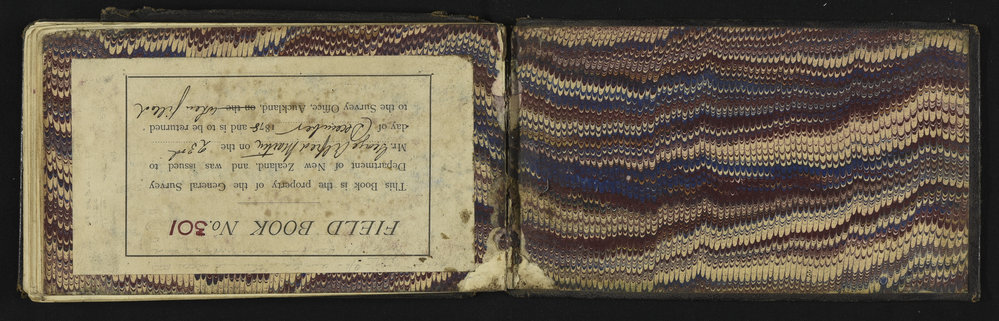 FIELD BOOK No. 301
This Book is the property of the General Survey
Department of New Zealand, and was issued to
Mr. George Alfred Martin on the 23rd
day of December 1878 and is to be returned
to the Survey Office, Auckland, on the when filled